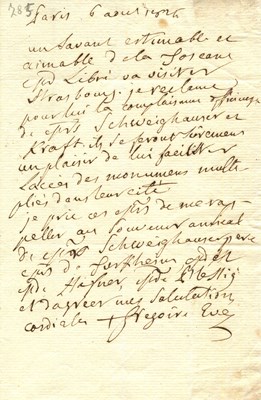 285
Paris 6 aout 1824
un savant estimable et
aimable de la Toscane
Mr Libri va visiter
Strasbourg. je reclame
pour lui la complaisance
de Mrs Schweighauser et
Kraft. ils se feront surement
un plaisir de lui faciliter
l'acces des monumens multi-
pliés dans leur cité
je prie ces Mrs de me rap-
peller au souvenir amical
de Mrs Schweighauser pere
et d'agréer mes salutations
cordiales + Grégoire